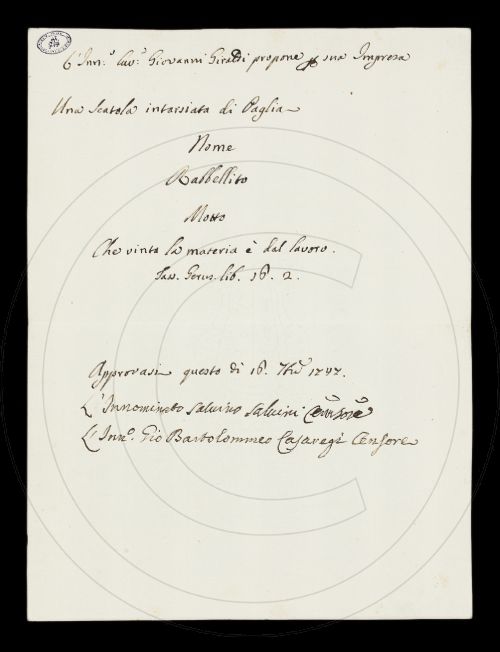 L'Inn.º Cav.º Giovanni Giraldi propone p sua Impresa
Una Scatola intarsiata di Paglia
Nome
Rabbellito
Motto
Che vinta la materia è dal lavoro.
Tass. Gerus. lib. 16. 2.
Approvasi questo dì 16. 7bre
L'Innominato Salvino Salvini Censore
L'Inn.º Gio Bartolommeo Casaregi Censore